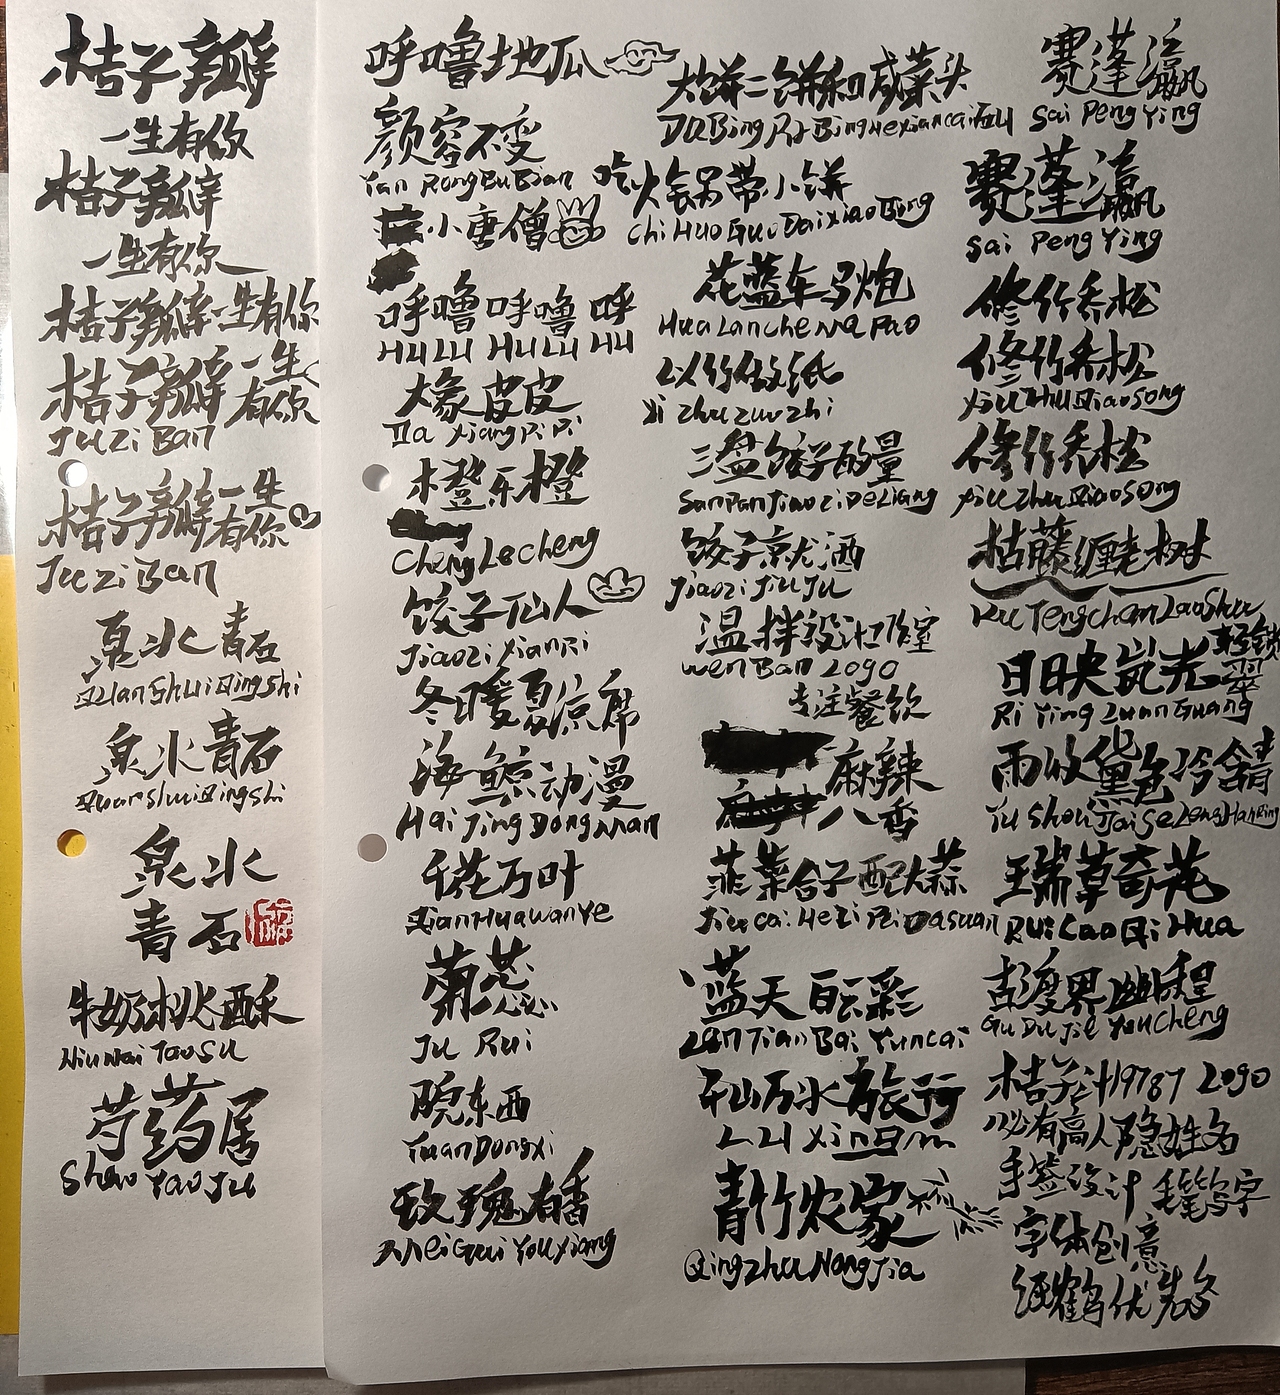 桔子瓣
一生有你
桔子瓣
一生有你
桔子瓣一生有你
桔子瓣一生
有你
JuZi Ban
桔子瓣一生
有你
JuZi Ban
泉水青石
QuanShuiQingShi
泉水青石
QuanShuiQingShi
泉水
青石
牛奶桃酥
NiuNai TaoSu
芍药居
Shao Yao Ju
呼噜地瓜
颜容不变
Yan RongBuBian
小唐僧
呼噜呼噜呼
HULU HULU HU
大象皮皮
Da XiangPiPi
橙乐橙
ChengLecheng
饺子仙人
JiaoziXianRi
冬暖夏凉席
海鲸动漫
HaiJingDongman
千花万叶
QianHuaWanYe
菊蕊
Ju Rui
YuanDongxi
玫瑰有香
MeiGuiYouXiang
大饼二饼和咸菜头
吃火锅带小饼
ChiHuoGuoDaiXiaoBing
花蓝车马炮
HuaLancheMaPao
以竹做纸
Yi zhuzuozhi
三盘饺子的量
SanPanJiaoziDeLiang
饺子就酒
JiaoziJiuJu
温拌设计工作室
WenBan Logo
专注餐饮
麻辣
八香
韭菜合子配大蒜
JiucaiHeziPeiDasuan
蓝天白云彩
LanTianBaiYuncai
千山万水旅行
LUXing
青竹农家
QingzhuNongJia
赛蓬瀛
Sai PengYing
赛蓬瀛
Sai PengYing
修竹乔松
修竹乔松
XiuZhuQiaoSong
修竹乔松
XiuZhuQiaoSong
枯藤缠老树
KuTengchanLaoShu
日映岚光轻锁翠
Ri Ying LuanGuang
雨收黛色冷含青
Yu ShouDaiSeLengHanQing
瑞草奇花
RuiCaoQiHua
GuDuJieYouCheng
桔子汁19787 Logo
必有高人隐姓名
手签设计 毛笔写字
字体创意
纸鹤优悠